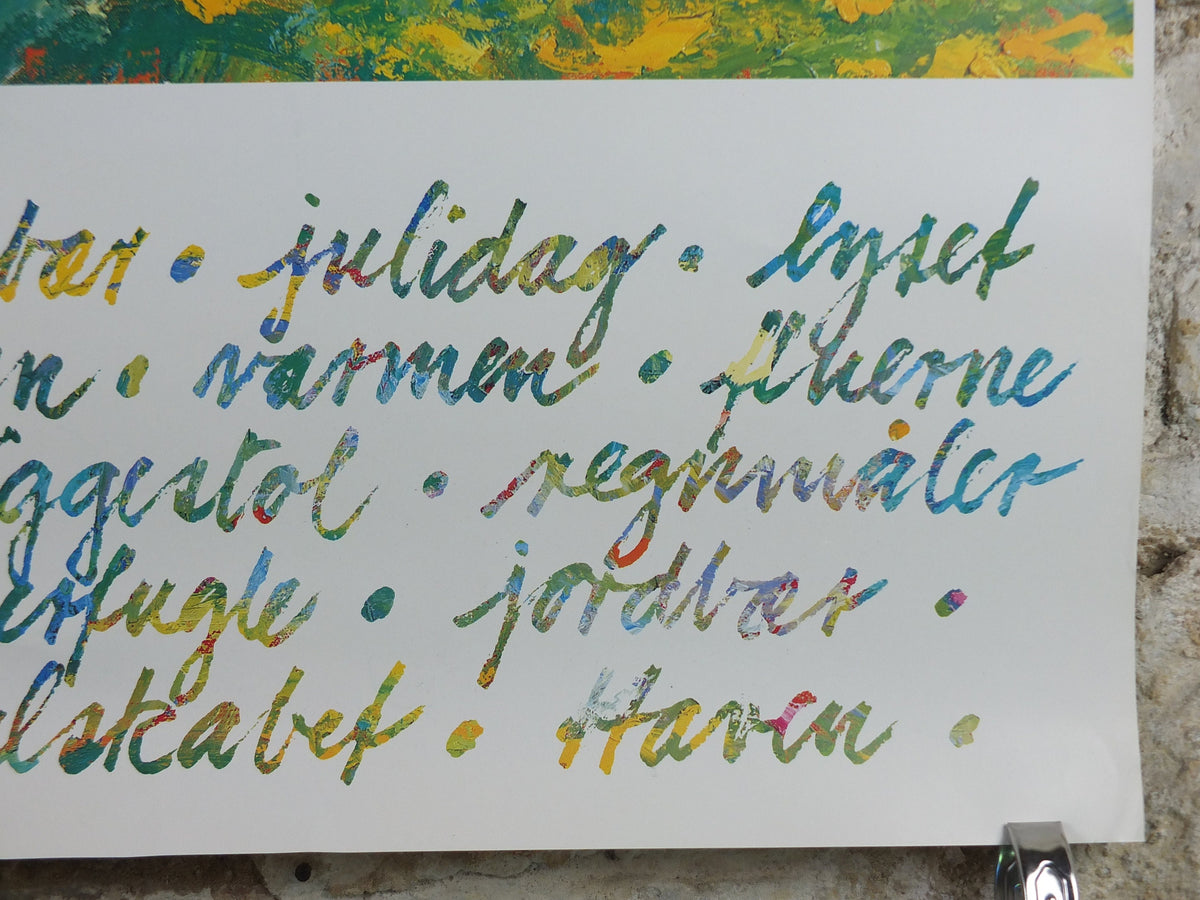 bær • julidag • lyset
n • varmen • fluerne
ggestol • regnmåler
erfugle • jordbær •
lskabet • Haven •